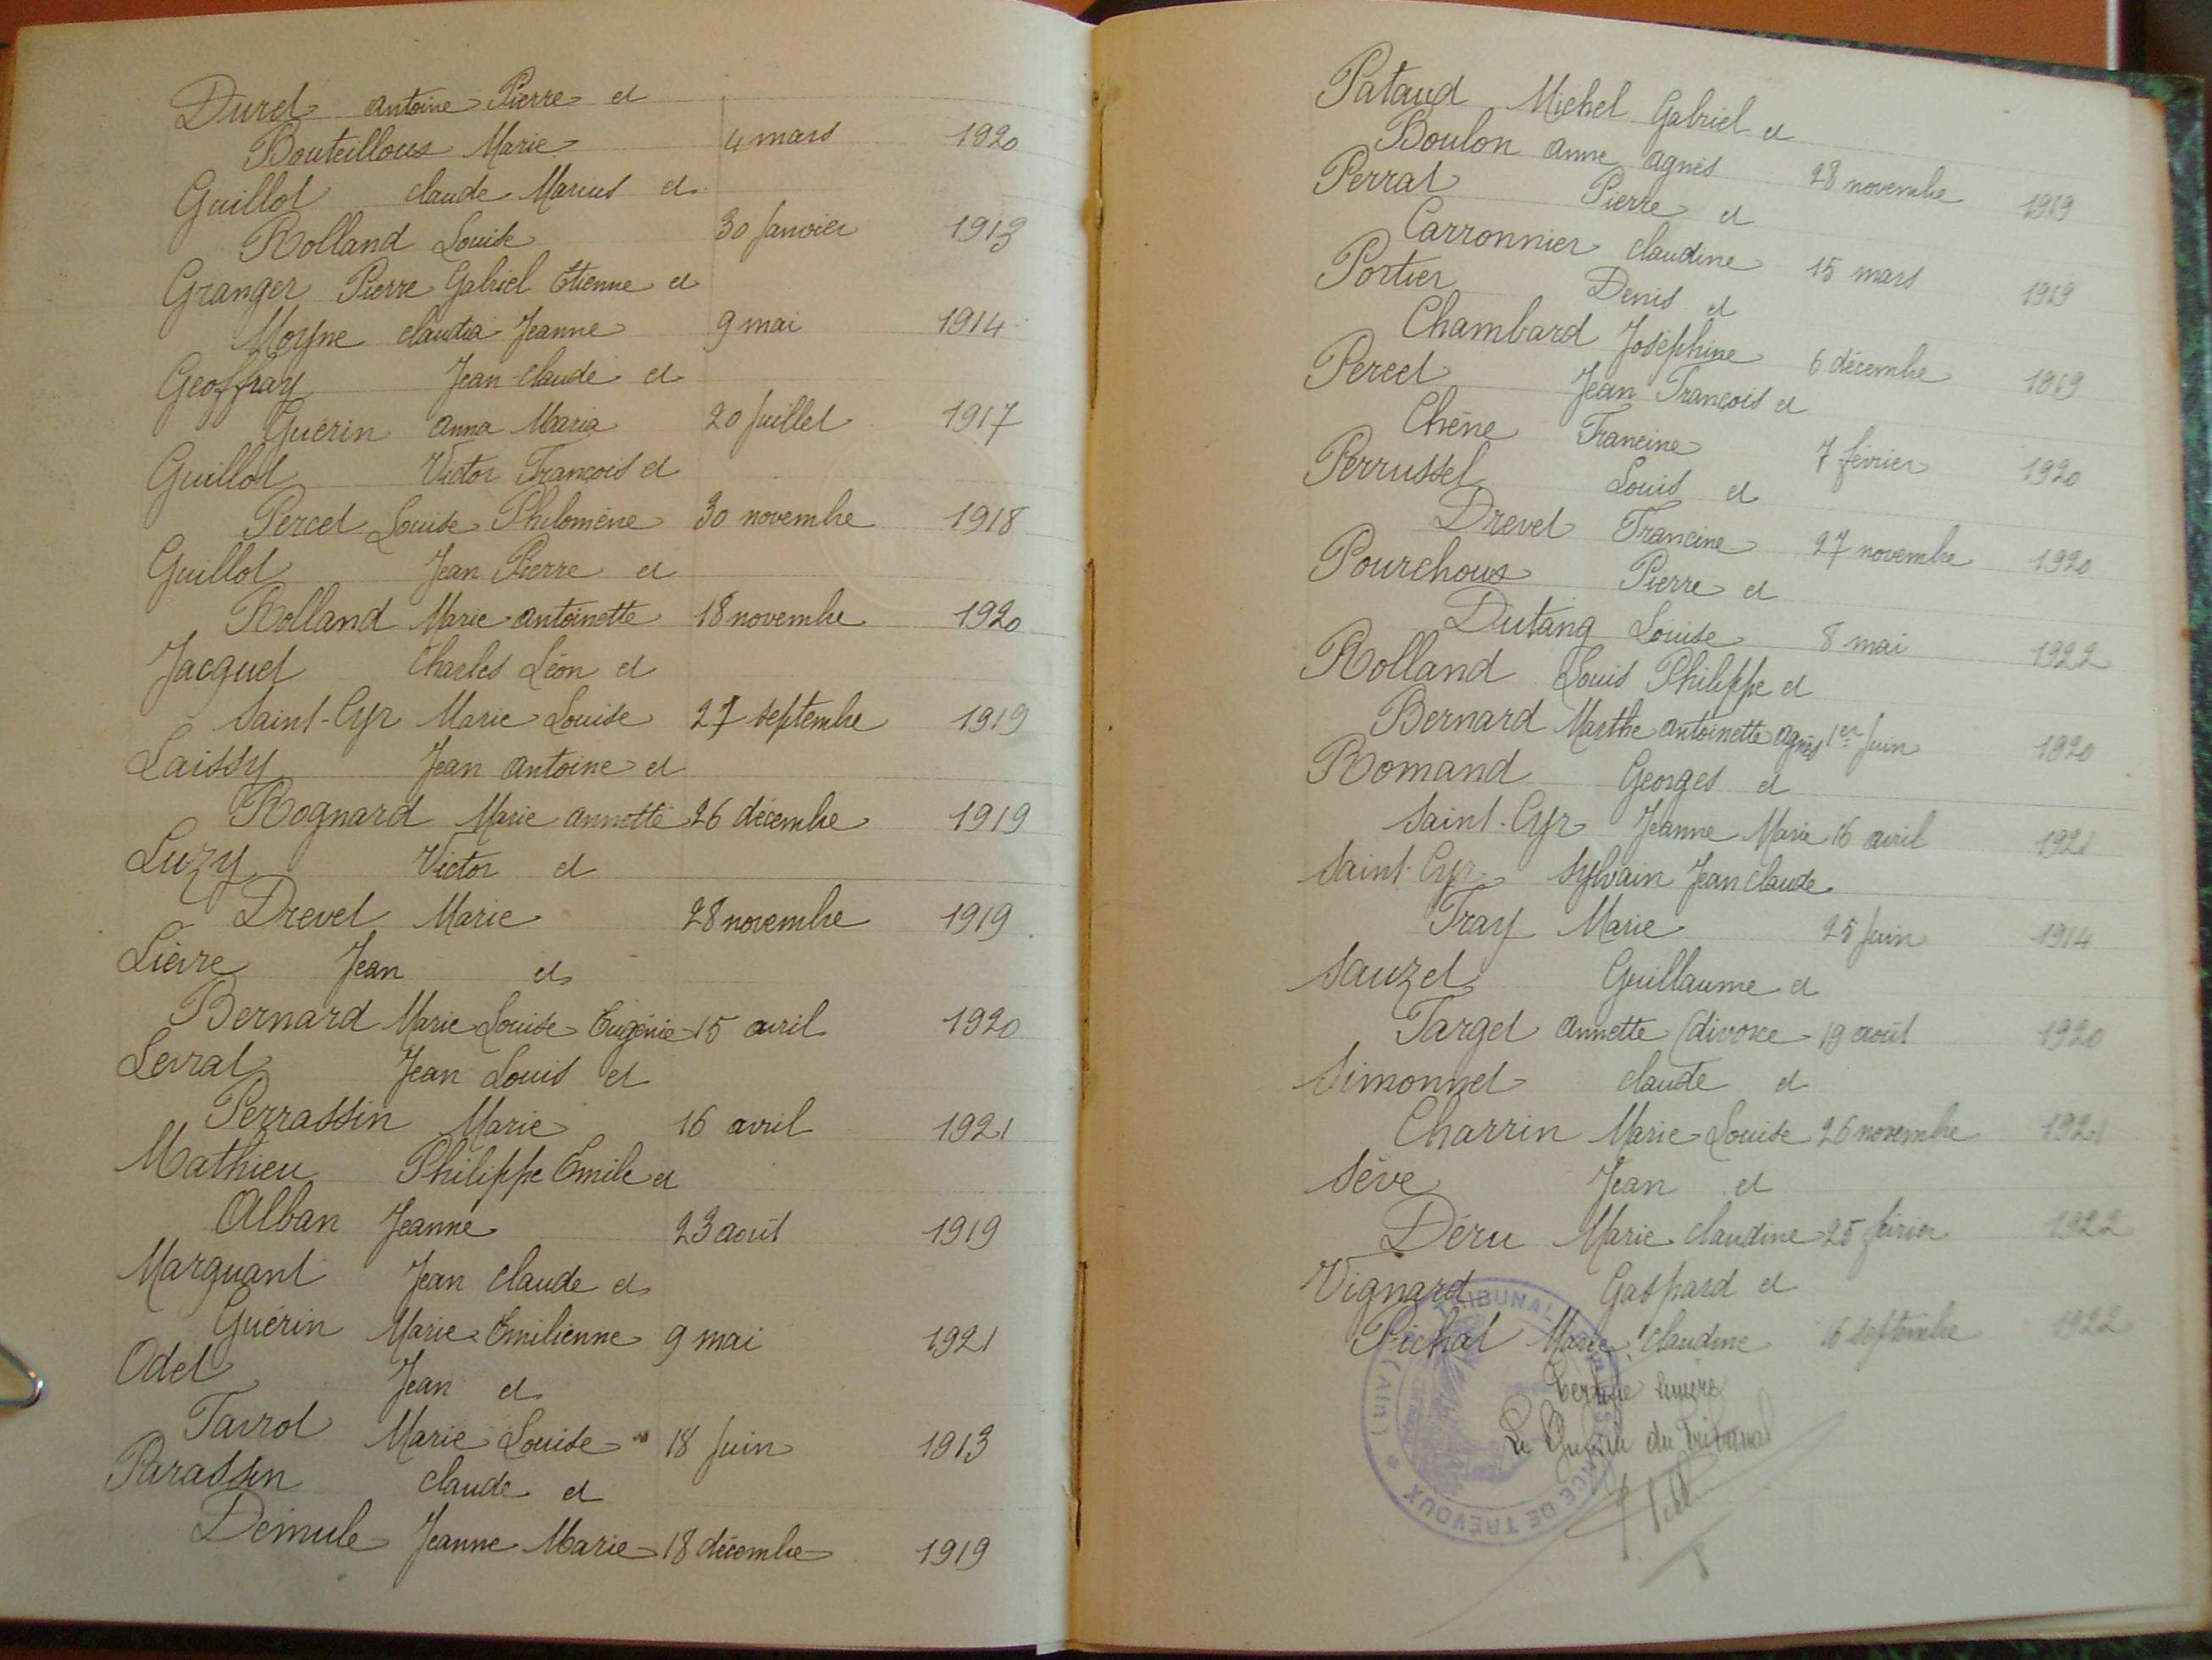 Duret Antoine Pierre et
Bouteilloux Marie 4 mars 1920
Guillot Claude Marius et
Rolland Louise 30 Janvier 1913
Granger Pierre Gabriel Etienne et
Moyne Claudia Jeanne 9 mai 1914
Geoffray Jean-Claude et
Guérin Anna Maria 20 Juillet 1917
Guillot Victor François et
Percet Louise Philomène 30 novembre 1918
Guillot Jean Pierre et
Rolland Marie Antoinette 18 novembre 1920
Jacquet Charles Léon et
Saint-Cyr Marie Louise 27 septembre 1919
Laissy Jean Antoine et
Rognard Marie Annette 26 décembre 1919
Luzy Victor et
Drevet Marie 28 novembre 1919
Lièvre Jean et
Bernard Marie Louise Eugénie 15 avril 1920
Levrat Jean Louis et
Perrassin Marie 16 avril 1921
Mathieu Philippe Emile et
Alban Jeanne 23 août 1919
Marquant Jean Claude et
Guérin Marie Emilienne 9 mai 1921
Odet Jean et
Tavrot Marie Louise 18 Juin 1913
Parassin Claude et
Demule Jeanne Marie 18 décembre 1919
Pataud Michel Gabriel et
Boulon Anne Agnès 28 novembre 1919
Perrat Pierre et
Carronnier Claudine 15 mars 1919
Portier Denis et
Chambard Joséphine 6 décembre 1919
Percet Jean François et
Chêne Francine 7 février 1920
Perrussel Louis et
Drevet Francine 27 novembre 1920
Pourchoux Pierre et
Dutang Louise 8 mai 1922
Rolland Louis Philippe et
Bernard Marthe Antoinette Agnès 1er Juin 1920
Romand Georges et
Saint-Cyr Jeanne Marie 16 avril 1921
Saint-Cyr Sylvain Jean Claude
Fray Marie 25 Juin 1914
Sauzet Guillaume et
Target Annette (divorce 19 août 1920
Simonnet Claude et
Charrin Marie Louise 26 novembre 1921
Sève Jean et
Déru Marie Claudine 25 février 1922
Vignard Gaspard et
Pichat Marie Claudine 16 septembre 1922
Le Greffier du Tribunal
TRIBUNAL
INSTANCE DE TREVOUX
(Ain)